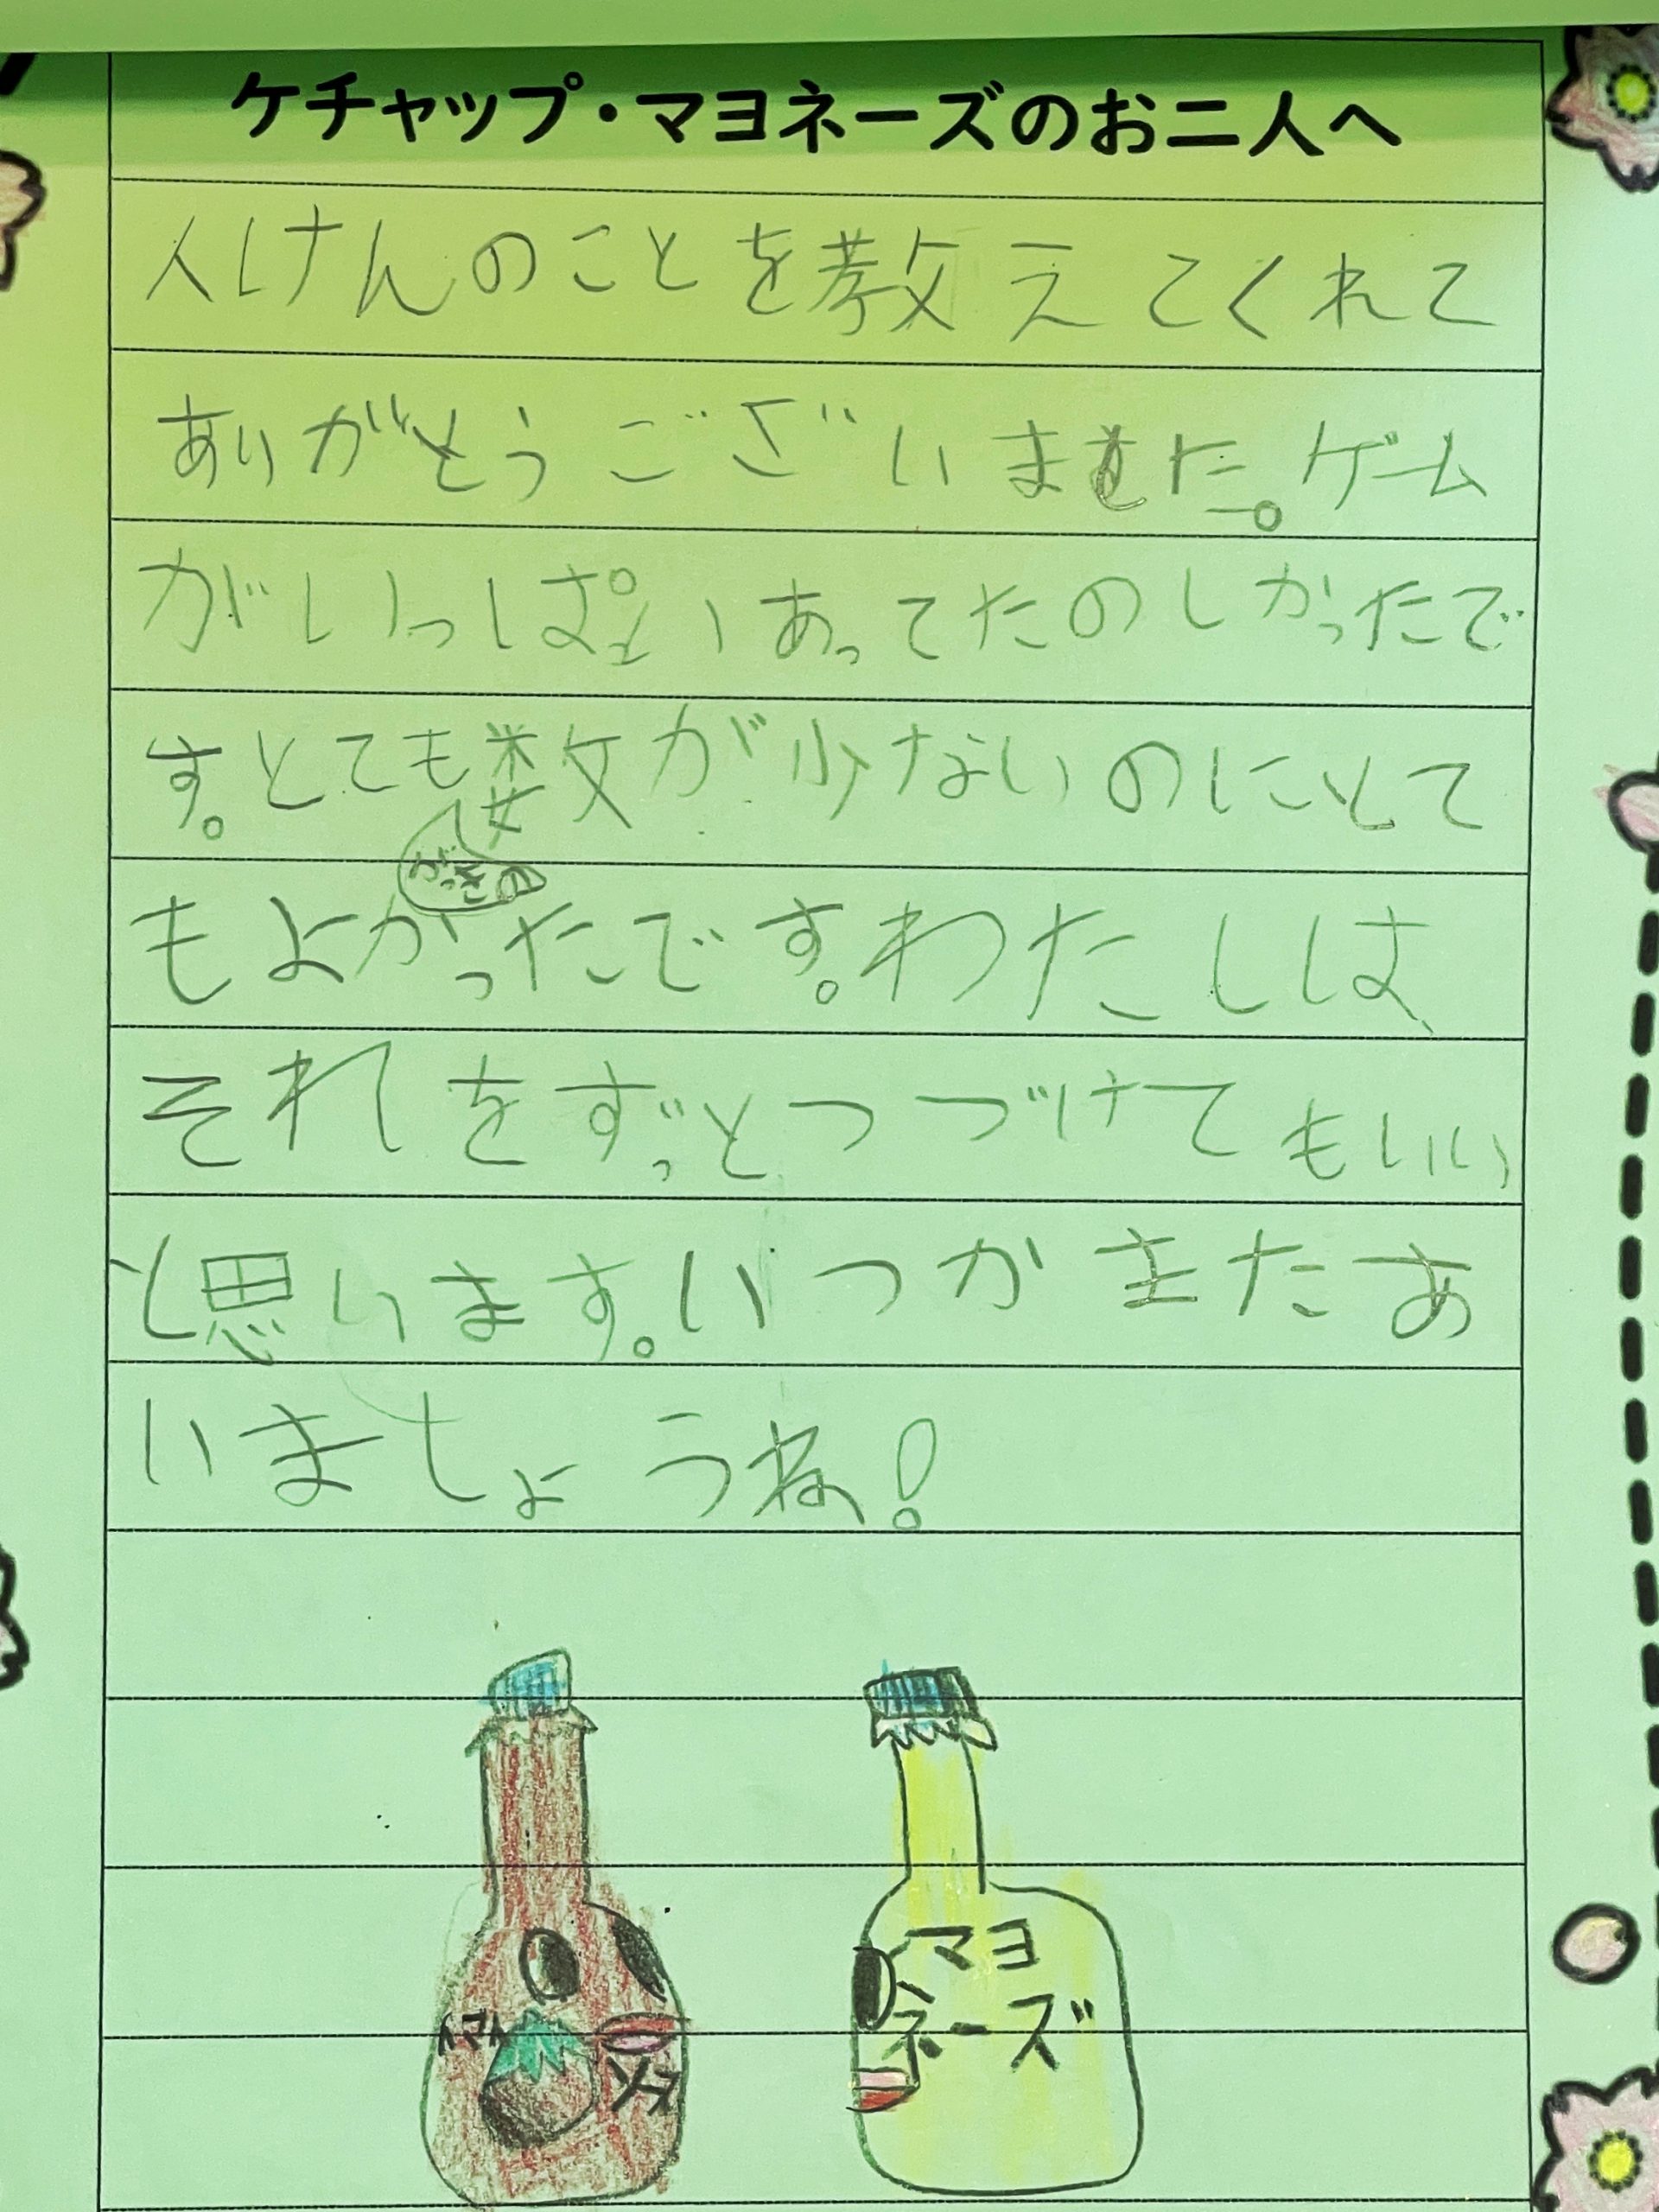 ケチャップ・マヨネーズのお二人へ
人けんのことを教えてくれて
ありがとうございました。ゲーム
がいっぱいあってたのしかったで
す。とても数が少ないのにとて
がっきの
もよかったです。わたしは、
それをずっとつづけてもいい
と思います。いつかまたあ
いましょうね!
マヨ
ネーズ
トマト